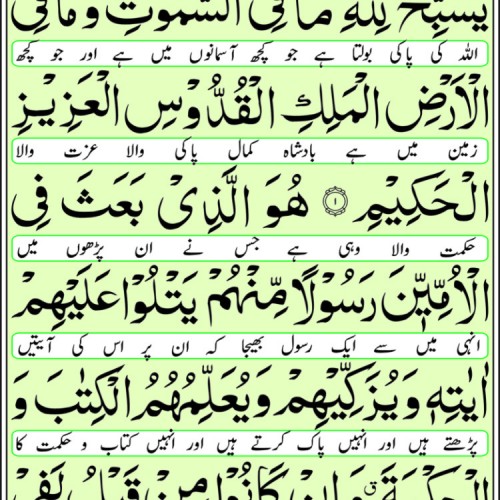 يُسَبِّحُ لِلّٰهِ مَا فِي السَّمٰوٰتِ وَمَا فِي
اللہ کی پاکی بولتا ہے جو کچھ آسمانوں میں ہے اور جو کچھ
الْاَرْضِ الْمَلِكِ الْقُدُّوْسِ الْعَزِيْزِ
زمین میں ہے بادشاہ کمال پاکی والا عزت والا
الْحَكِيْمِ ۝۱ هُوَ الَّذِيْ بَعَثَ فِي
حکمت والا وہی ہے جس نے ان پڑھوں میں
الْاُمِّيّٖنَ رَسُوْلًا مِّنْهُمْ يَتْلُوْا عَلَيْهِمْ
انہی میں سے ایک رسول بھیجا کہ ان پر اس کی آیتیں
اٰيٰتِهٖ وَيُزَكِّيْهِمْ وَيُعَلِّمُهُمُ الْكِتٰبَ وَ
پڑھتے ہیں اور انہیں پاک کرتے ہیں اور انہیں کتاب و حکمت کا
الْحِكْمَةَ ۗ وَاِنْ كَانُوْا مِنْ قَبْلُ لَفِيْ